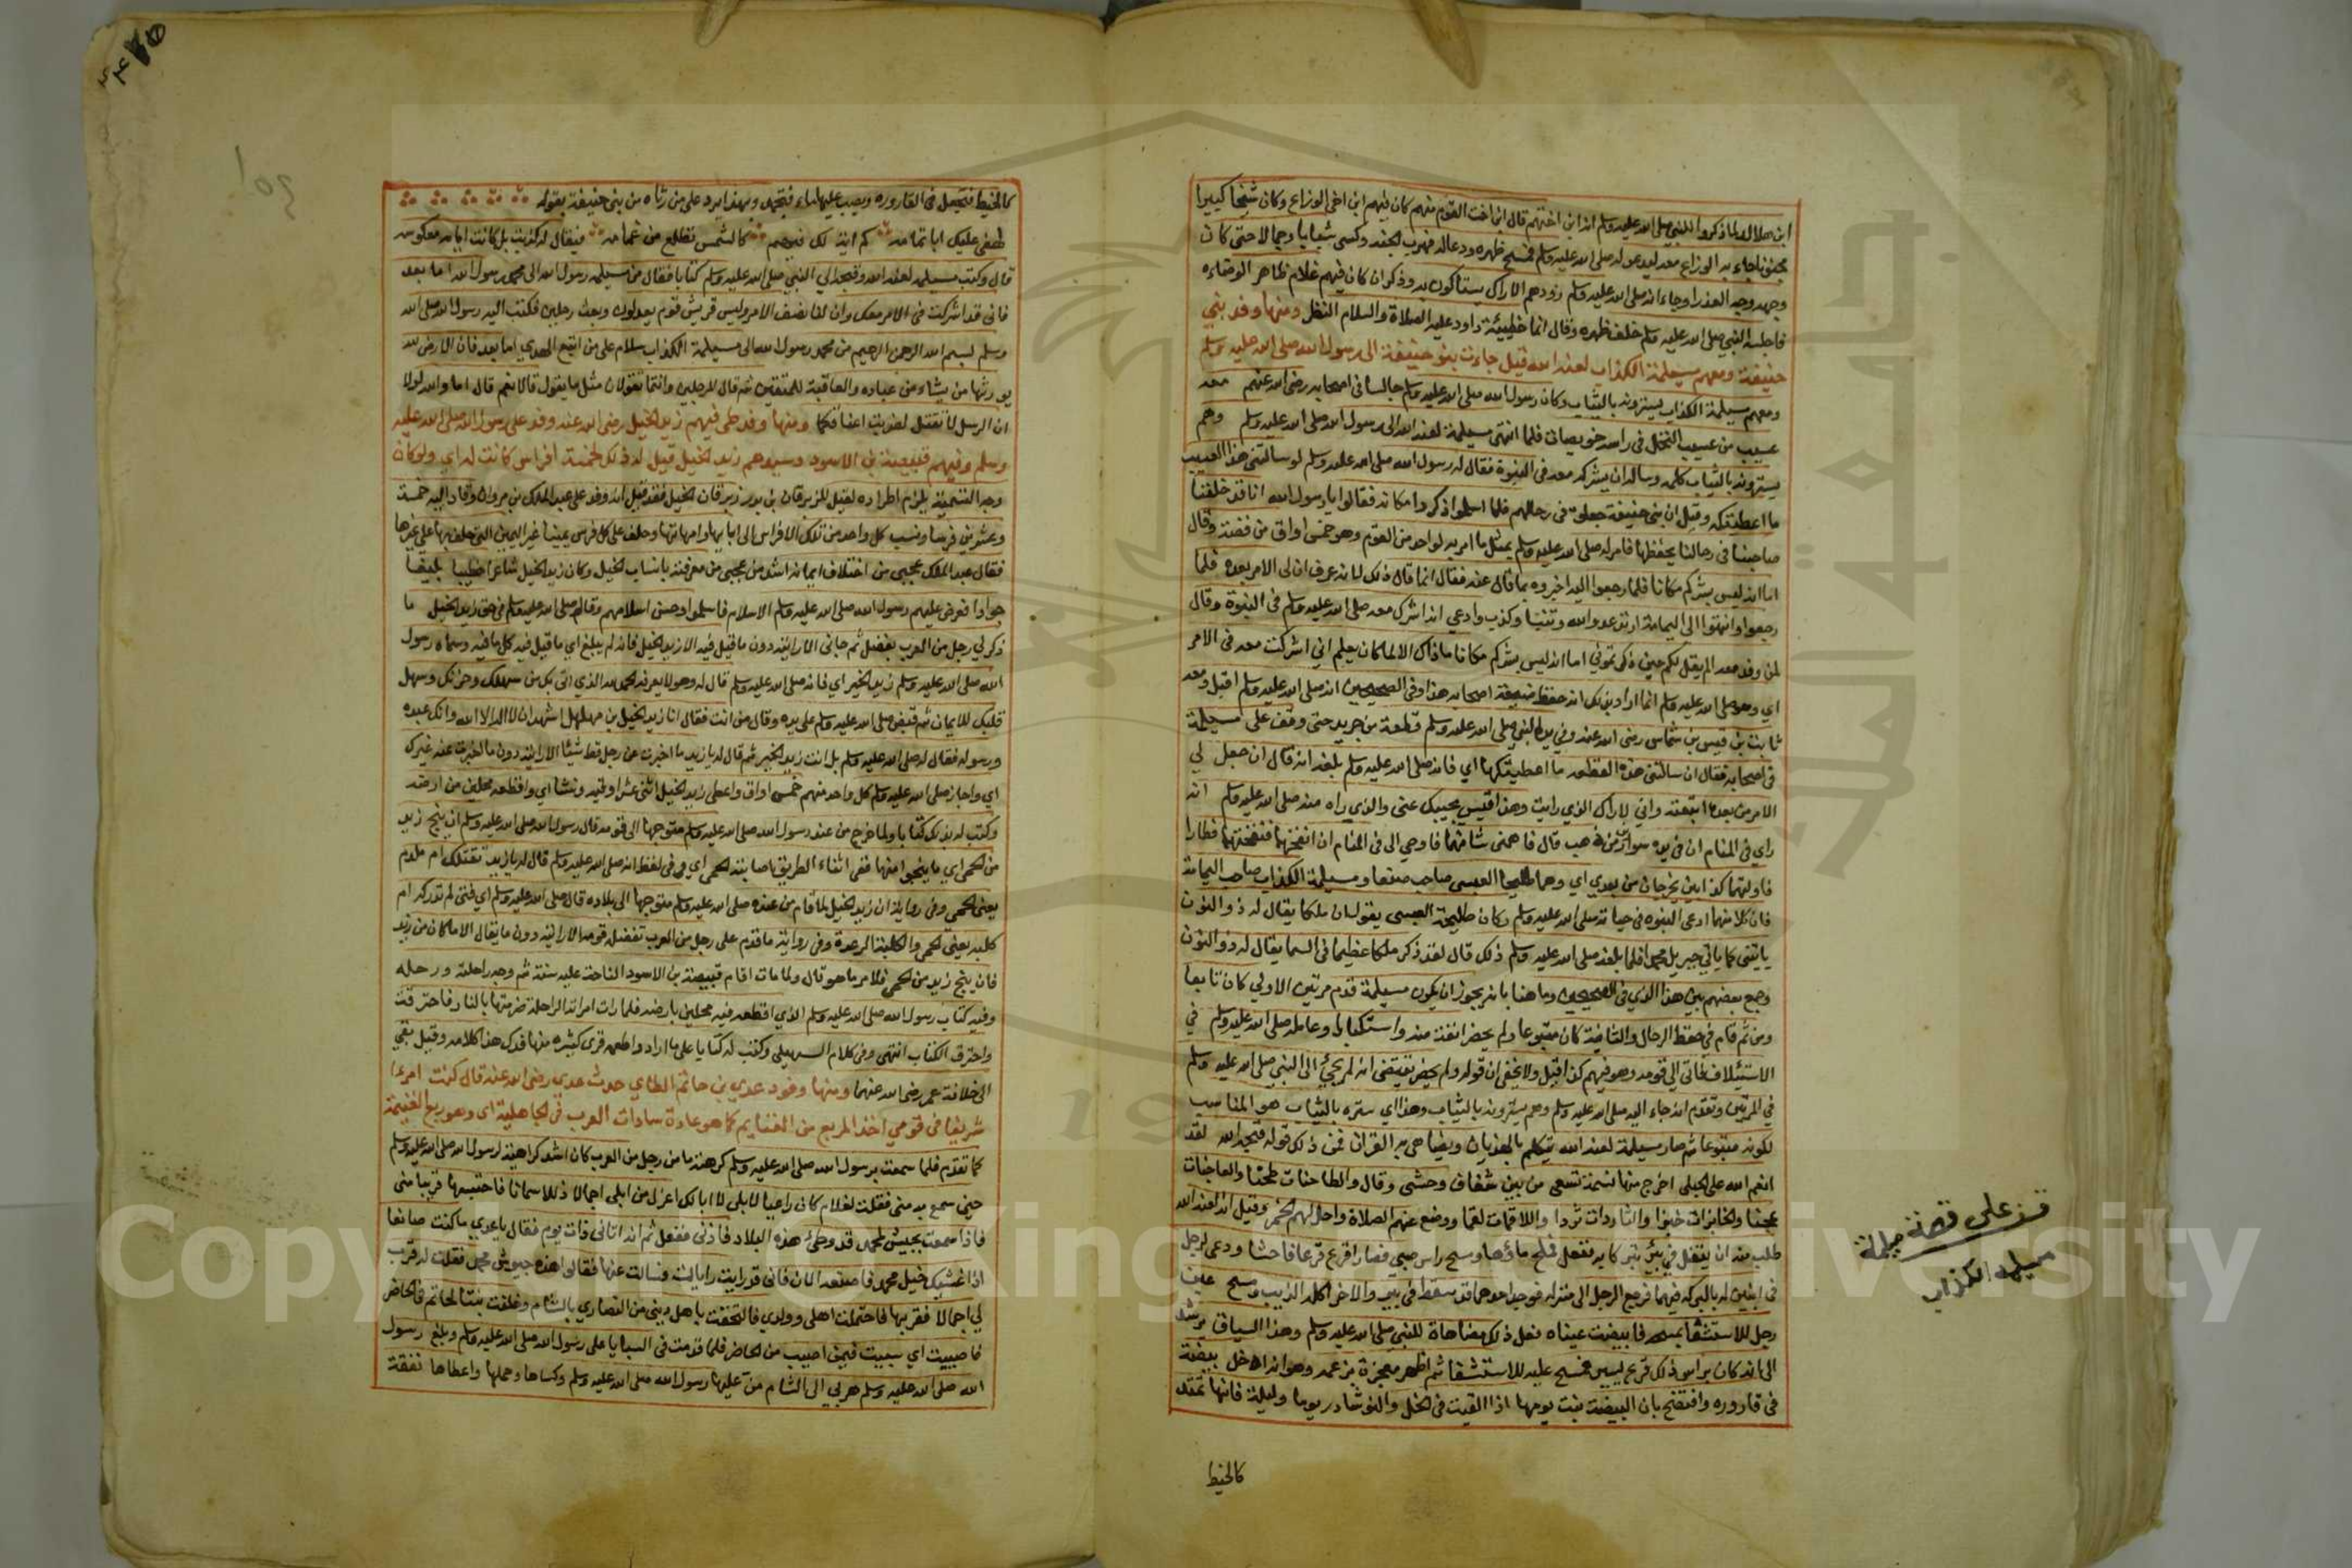 ابن هلال لما ذكروا للنبي صلى الله عليه وسلم انه ابن اختهم قال ابن اخت القوم منهم كان فيهم ابن اخي الوزاع وكان شيخا كبيرا
مجنونا جاء به الوزاع معه ليدعو له صلى الله عليه وسلم فمسح ظهره ودعا له فبرئ لحينه وكسي شبابا وجمالا حتى كان
وجهه وجه العذرا وجاء انه صلى الله عليه وسلم زودهم الاراك يستاكون به وذكر ان كان فيهم غلام ظاهر الوضاءه
فاجلسه النبي صلى الله عليه وسلم خلف ظهره وقال انما خطيئة داود عليه الصلاة والسلام النظر ومنها وفد بني
حنيفة ومعهم مسيلمة الكذاب لعنه الله قيل جاءت بنو حنيفة الى رسول الله صلى الله عليه وسلم
ومعهم مسيلمة الكذاب يسترونه بالثياب وكان رسول الله صلى الله عليه وسلم جالسا في اصحابه رضي الله عنهم معه
عسيب من عسيب النخل في راسه خويصات فلما انتهى مسيلمة لعنه الله الى رسول الله صلى الله عليه وسلم وهم
يسترونه بالثياب كلمه وساله ان يشركه معه في النبوة فقال له رسول الله صلى الله عليه وسلم لو سالتني هذا العسيب
ما اعطيتكه وقيل ان بني حنيفة جعلوه في رحالهم فلما اسلموا ذكروا مكانه فقالوا يا رسول الله انا قد خلفنا
صاحبنا في رحالنا يحفظها فامر له صلى الله عليه وسلم بمثل ما امر به لواحد من القوم وهو خمس اواق من فضة وقال
اما انه ليس بشركم مكانا فلما رجعوا اليه اخبروه بما قال عنه فقال انما قال ذلك لانه عرف ان لي الامر بعده فلما
رجعوا وانتهوا الى اليمامة ارتد عدو الله وتنبا وكذب وادعى انه اشرك معه صلى الله عليه وسلم في النبوة وقال
لمن وفد معه الم يقل لكم حين ذكرتموني اما انه ليس بشركم مكانا ما ذاك الا لما كان يعلم اني اشركت معه في الامر
اي وهو صلى الله عليه وسلم انما اراد بذلك انه حفظ ضيعة اصحابه هذا وفي الصحيحين انه صلى الله عليه وسلم اقبل ومعه
ثابت بن قيس بن شماس رضي الله عنه وفي يد النبي صلى الله عليه وسلم قطعة من جريد حتى وقف على مسيلمة
في اصحابه فقال ان سالتني هذه القطعه ما اعطيتكها اي فانه صلى الله عليه وسلم بلغه انه قال ان جعل لي
الامر من بعده اتبعته واني لاراك الذي رايت وهذا قيس يجيبك عني والذي راه منه صلى الله عليه وسلم انه
راي في المنام ان في يده سوارين من ذهب قال فاهمني شانهما فاوحي الي في المنام ان انفخهما فنفختهما فطارا
فاولتهما كذابين يخرجان من بعدي اي وهما طليحا العبسي صاحب صنعا ومسيلمة الكذاب صاحب اليمامة
فان كلا منهما ادعى النبوه في حياته صلى الله عليه وسلم وكان طليحة العبسي يقول ان ملكا يقال له ذو النون
ياتيني كما ياتي جبريل محمدا فلما بلغه صلى الله عليه وسلم ذلك قال لقد ذكر ملكا عظيما في السما يقال له ذو النون
وجمع بعضهم بين هذا الذي في الصحيحين وما هنا بانه يجوز ان يكون مسيلمة قدم مرتين الاولى كان تابعا
ومن ثم قام في حفظ الرحال والثانية كان متبوعا ولم يحضر انفة منه واستكبارا وعامله صلى الله عليه وسلم في
الاستيلاف فاتى الى قومه وهو فيهم كذا قيل ولا يخفى ان قوله ولم يحضر يقتضي انه لم يجي الى النبي صلى الله عليه وسلم
في المرتين وتقدم انه جاء اليه صلى الله عليه وسلم وهم يسترونه بالثياب وهذا اي ستره بالثياب هو المناسب
لكونه متبوعا ثم صار مسيلمة لعنه الله يتكلم بالهذيان ويضاهي به القران فمن ذلك قوله قبحه الله لقد
انعم الله على الحبلى اخرج منها نسمة تسعى من بين شغاف وحشى وقال والطاحنات طحنا والعاجنات
عجنا والخابزات خبزا والثاردات ثردا واللاقمات لقما ووضع عنهم الصلاة واحل لهم الخمر وقيل انه لعنه الله
طلب منه ان يتفل في بئر تبركا به ففعل فملح ماؤها ومسح راس صبي فصار اقرع قرعا فاحشا ودعى لرجل
في ابنين له بالبركه فيهما فرجع الرجل الى منزله فوجد احدهما قد سقط في بئر والاخر اكله الذيب ومسح عين
رجل للاستشفا بمسحه فابيضت عيناه فعل ذلك مضاهاة للنبي صلى الله عليه وسلم وهذا السياق يرشد
الى انه كان براس ذلك قرع يسير فمسح عليه للاستشفا ثم اظهر معجزة بزعمه وهو انه ادخل بيضة
في قارورة وافتضح بان البيضة بنت يومها اذا القيت في الخل والنوشادر يوما وليلة فانها تمتد
كالخيط
قف على قصة مسيلمة
مسيلمه الكذاب
كالخيط فتجعل في القاروره ويصب عليها الماء فتجمد وبهذا يرد على من رثاه من بني حنيفة بقوله
لهفي عليك ابا ثمامه كم اية لك فيهم كالشمس تطلع من غمامه فيقال له كذبت بل كانت اياته معكوسه
قال وكتب مسيلمه لعنه الله وقبحه الي النبي صلى الله عليه وسلم كتابا فقال من مسيلمه رسول الله الى محمد رسول الله اما بعد
فاني قد اشركت في الامر معك وان لنا نصف الامر وليس قريش قوم يعدلون وبعث رجلين فكتب اليه رسول الله صلى الله
وسلم بسم الله الرحمن الرحيم من محمد رسول الله الى مسيلمة الكذاب سلام على من اتبع الهدي اما بعد فان الارض لله
يورثها من يشاء من عباده والعاقبة للمتقين ثم قال للرجلين وانتما تقولان مثل ما يقول قالا نعم قال اما والله لولا
ان الرسل لا تقتل لضربت اعناقكما ومنها وفد طي فيهم زيد الخيل رضي الله عنه وفد على رسول الله صلى الله عليه
وسلم وفيهم قبيصة بن الاسود وسيدهم زيد الخيل قيل له ذلك لخمسة افراس كانت له اي ولو كان
وجه التسمية يلزم اطراده لقيل للزبرقان بن بدر زبرقان الخيل فقد قيل انه وفد على عبد الملك بن مروان وقاد اليه خمسة
وعشرين فرسا ونسب كل واحد من تلك الافراس الى ابايها وامهاتها وحلف على كل فرس يمينا غير اليمين التي حلف بها على غيرها
فقال عبد الملك عجبي من اختلاف ايمانه اشد من عجبي من معرفته بانساب الخيل وكان زيد الخيل شاعرا خطيبا بليغا
جوادا فعرض عليهم رسول الله صلى الله عليه وسلم الاسلام فاسلموا وحسن اسلامهم وقال صلى الله عليه وسلم في حق زيد الخيل ما
ذكر لي رجل من العرب بفضل ثم جاني الا رايته دون ما قيل فيه الا زيد الخيل فانه لم يبلغ اي ما قيل فيه كل ما فيه وسماه رسول
الله صلى الله عليه وسلم زيد الخير اي فانه صلى الله عليه وسلم قال له وهو لا يعرفه الحمد لله الذي اتى بك من سهلك وحزنك وسهل
قلبك للايمان ثم قبض صلى الله عليه وسلم على يده وقال من انت فقال انا زيد الخيل بن مهلهل اشهد ان لا اله الا الله وانك عبده
ورسوله فقال له صلى الله عليه وسلم بل انت زيد الخير ثم قال له يا زيد ما اخبرت عن رجل قط شيئا الا رايته دون ما اخبرت عنه غيرك
اي واجاز صلى الله عليه وسلم كل واحد منهم خمس اواق واعطى زيد الخيل اثنى عشر اوقيه ونشا اي واقطعه محلين من ارضه
وكتب له بذلك كتابا ولما خرج من عند رسول الله صلى الله عليه وسلم متوجها الى قومه قال رسول الله صلى الله عليه وسلم ان ينج زيد
من الحمى اي ما ينجوا منها ففي اثناء الطريق اصابته الحمى اي وفي لفظ انه صلى الله عليه وسلم قال له يا زيد تقتلك ام ملدم
يعني الحمى وفي رواية ان زيد الخيل لما قام من عنده صلى الله عليه وسلم متوجها الى بلاده قال صلى الله عليه وسلم اي فتى لم تدركه ام
كلبه يعني الحمى والكلبة الرعدة وفي رواية ما قدم على رجل من العرب تفضله قومه الا رايته دون ما يقال الا ما كان من زيد
فان ينج زيد من الحمى فلامر ما هو قال ولما مات اقام قبيصة بن الاسود المناحة عليه سنة ثم وجه راحلته ورحله
وفيه كتاب رسول الله صلى الله عليه وسلم الذي اقطعه فيه محلين بارضه فلما رات امراته الراحلة ضرمتها بالنار فاحترقت
واحترق الكتاب انتهى وفي كلام السهيلي وكتب له كتابا على ما اراد واطعمه قرى كثيره منها فدك هذا كلامه وقيل بقي
الى خلافة عمر رضي الله عنهما ومنها وفود عدي بن حاتم الطاي حدث عدي رضي الله عنه قال كنت امرءا
شريفا في قومي اخذ المربع من الغنايم كما هو عادة سادات العرب في الجاهلية اي وهو ربع الغنيمة
كما تقدم فلما سمعت برسول الله صلى الله عليه وسلم كرهته ما من رجل من العرب كان اشد كراهية لرسول الله صلى الله عليه وسلم
حين سمع به مني فقلت لغلام كان راعيا لابلي لا ابا لك اعزل من ابلي اجمالا ذللا سمانا فاحتبسها قريبا مني
فاذا سمعت بجيش لمحمد قد وطئ هذه البلاد فاذني ففعل ثم انه اتاني ذات يوم فقال يا عدي ما كنت صانعا
اذا غشيتك خيل محمد فاصنعه الان فاني قد رايت رايات فسالت عنها فقالوا هذه جيوش محمد فقلت له قرب
لي اجمالا فقربها فاحتملت اهلي وولدي فالتحقت باهل ديني من النصاري بالشام وخلفت بنتا لحاتم في الحاضر
فاصيبت اي سبيت فيمن اصيب من الحاضر فلما قدمت في السبايا على رسول الله صلى الله عليه وسلم وبلغ رسول
الله صلى الله عليه وسلم هربي الى الشام من عليها رسول الله صلى الله عليه وسلم وكساها وحملها واعطاها نفقة
Copyright © King Saud University